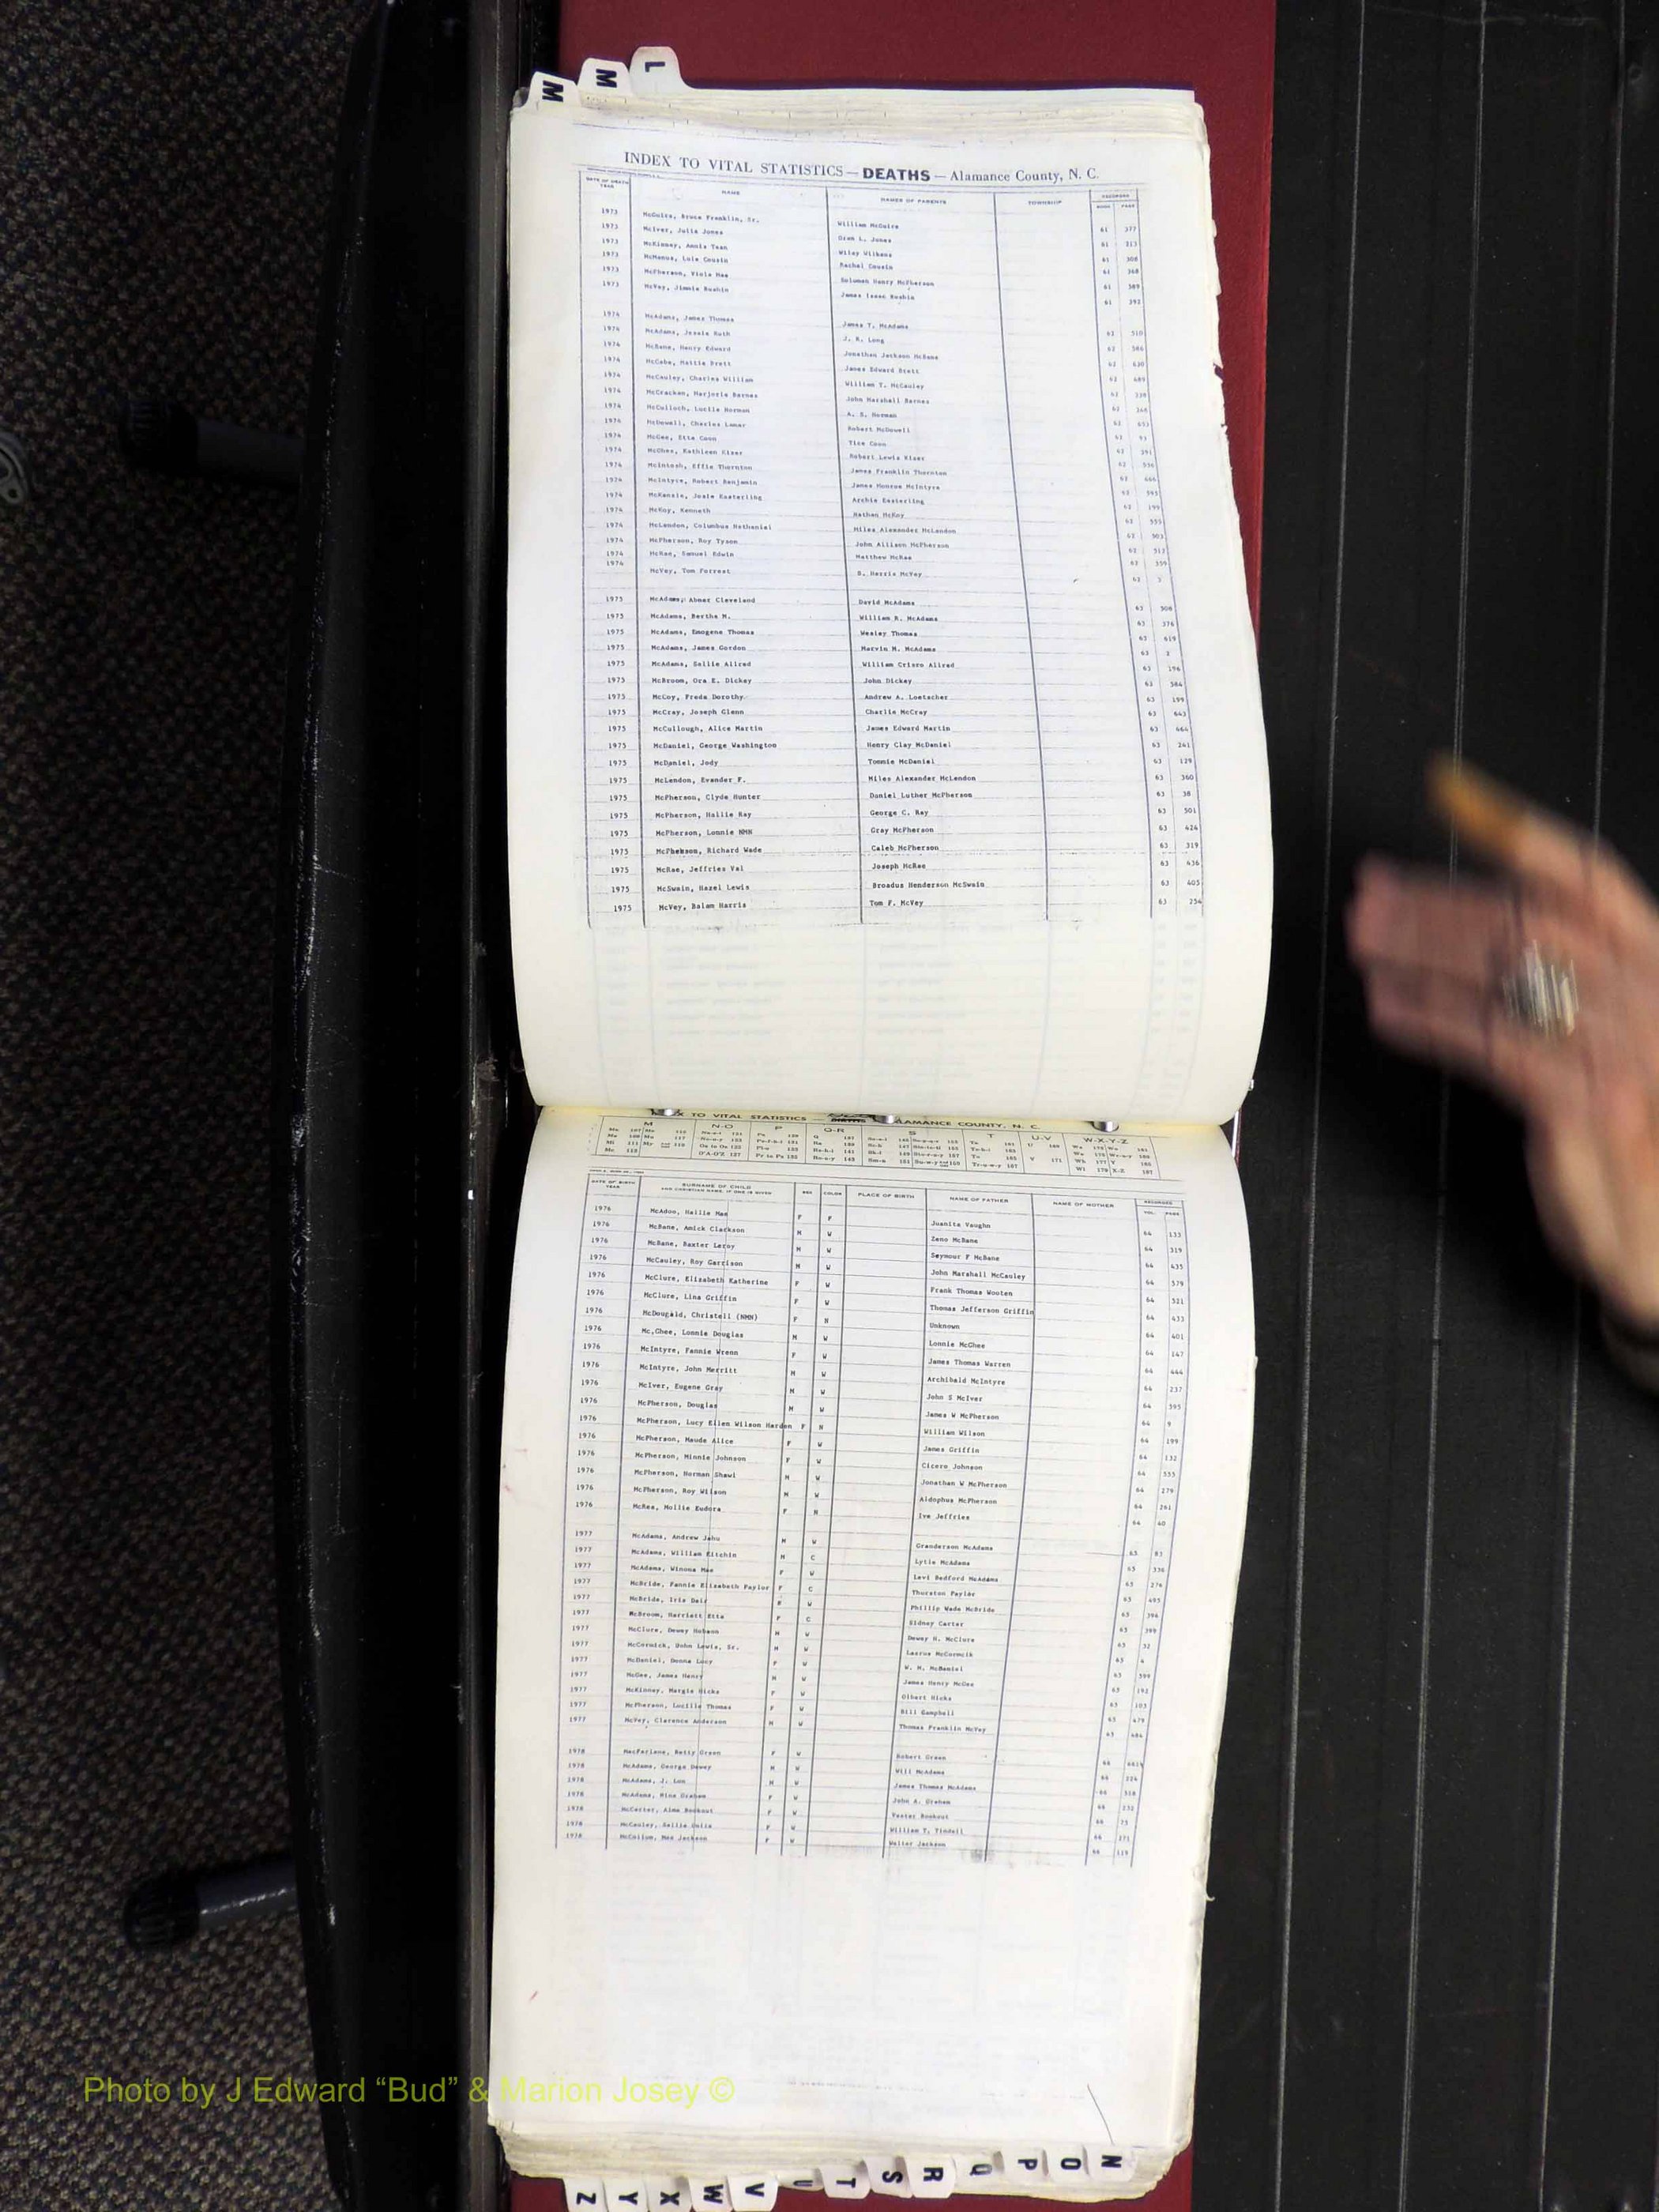 L
M
M
INDEX TO VITAL STATISTICS — DEATHS — Alamance County, N. C.
DATE OF DEATH YEAR NAME NAMES OF PARENTS TOWNSHIP RECORDED BOOK PAGE
1973 McGuire, Bruce Franklin, Sr. William McGuire 61 377
1973 McIver, Julia Jones Oren L. Jones 61 213
1973 McKinney, Annie Tean Wiley Wilkens 61 308
1973 McManus, Lois Cousin Rachel Cousin 61 368
1973 McPherson, Viola Mae Soloman Henry McPherson 61 389
1973 McVey, Jimmie Boshin James Isaac Boshin 61 392
1974 McAdams, James Thomas James T. McAdams 62 510
1974 McAdams, Jessie Ruth J. R. Long 62 586
1974 McBane, Henry Edward Jonathan Jackson McBane 62 630
1974 McCabe, Mattie Brett James Edward Brett 62 689
1974 McCauley, Charles William William T. McCauley 62
1974 McCracken, Marjorie Barnes John Marshall Barnes 62
1974 McCulloch, Lucile Horman A. S. Horman 62 653
1974 McDowell, Charles Lamar Robert McDowell
1974 McGee, Etta Coon Tice Coon 62 291
1974 McGhee, Kathleen Kizer Robert Lewis Kizer 62
1974 McIntosh, Effie Thornton James Franklin Thornton 62
1974 McIntyre, Robert Benjamin James Monroe McIntyre 62 595
1974 McKenzie, Josie Easterling Archie Easterling 62 199
1974 McKoy, Kenneth Nathan McKoy 62 555
1974 McLendon, Columbus Nathaniel Miles Alexander McLendon 62 503
1974 McPherson, Roy Tyson John Allison McPherson 62 513
1974 McRae, Samuel Edwin Matthew McRae 62 359
1974 McVey, Tom Forrest B. Harris McVey 62 3
1975 McAdams, Abner Cleveland David McAdams 63 508
1975 McAdams, Bertha M. William R. McAdams 63 376
1975 McAdams, Emogene Thomas Wesley Thomas 63 619
1975 McAdams, James Gordon Marvin M. McAdams 63 2
1975 McAdams, Sallie Allred William Crisro Allred 63 196
1975 McBroom, Ora E. Dickey John Dickey 63 584
1975 McCoy, Freda Dorothy Andrew A. Loetscher 63 199
1975 McCray, Joseph Glenn Charlie McCray 63 643
1975 McCullough, Alice Martin James Edward Martin 63 664
1975 McDaniel, George Washington Henry Clay McDaniel 63 241
1975 McDaniel, Jody Tommie McDaniel 63 129
1975 McLendon, Evander F. Miles Alexander McLendon 63 360
1975 McPherson, Clyde Hunter Daniel Luther McPherson 63 38
1975 McPherson, Hallie Ray George C. Ray 63 501
1975 McPherson, Lonnie NMN Gray McPherson 63 424
1975 McPherson, Richard Wade Caleb McPherson 63 319
1975 McRae, Jeffries Val Joseph McRae 63 436
1975 McSwain, Hazel Lewis Broadus Henderson McSwain 63 405
1975 McVey, Balam Harris Tom F. McVey 63 254
TO VITAL STATISTICS — BIRTHS ALAMANCE COUNTY, N. C.
M N-O P Q-R S T U-V W-X-Y-Z
DATE OF BIRTH YEAR SURNAME OF CHILD AND CHRISTIAN NAME, IF ONE IS GIVEN SEX COLOR PLACE OF BIRTH NAME OF FATHER NAME OF MOTHER RECORDED VOL. PAGE
1976 McAdoo, Hallie Mae F F Juanita Vaughn 64 133
1976 McBane, Amick Clackson M W Zeno McBane 64 319
1976 McBane, Baxter Leroy M W Seymour F McBane 64 435
1976 McCauley, Roy Garrison M W John Marshall McCauley 64 579
1976 McClure, Elizabeth Katherine F W Frank Thomas Wooten 64 521
1976 McClure, Lina Griffin F W Thomas Jefferson Griffin 64 433
1976 McDougald, Christell (NMN) F N Unknown 64 401
1976 Mc,Ghee, Lonnie Douglas M W Lonnie McGhee 64 147
1976 McIntyre, Fannie Wrenn F W James Thomas Warren 64 444
1976 McIntyre, John Merritt M W Archibald McIntyre 64 237
1976 McIver, Eugene Gray M W John S McIver 64 595
1976 McPherson, Douglas M W James W McPherson 64 9
1976 McPherson, Lucy Ellen Wilson Harden F N William Wilson 64 199
1976 McPherson, Maude Alice F W James Griffin 64 132
1976 McPherson, Minnie Johnson F W Cicero Johnson 64 555
1976 McPherson, Norman Shawl M W Jonathan W McPherson 64 279
1976 McPherson, Roy Wilson M W Aldophus McPherson 64 261
1976 McRea, Mollie Eudora F N Ive Jeffries 64 40
1977 McAdams, Andrew Jahu M W Granderson McAdams 65 83
1977 McAdams, William Kitchin M C Lytle McAdams 65 336
1977 McAdams, Winona Mae F W Levi Bedford McAdams 65 276
1977 McBride, Fannie Elizabeth Paylor F C Thurston Paylor 65 495
1977 McBride, Iris Dair W Phillip Wade McBride 65 396
1977 McBroom, Harriett Etta F C Sidney Carter 65 399
1977 McClure, Dewey Hobson M W Dewey H. McClure 65 32
1977 McCormick, John Lewis, Sr. M W Lacrus McCormcik 65 4
1977 McDaniel, Donna Lucy F W W. H. McDaniel 65 599
1977 McGee, James Henry M W James Henry McGee 65 192
1977 McKinney, Margie Hicks F W Olbert Hicks 65 103
1977 McPherson, Lucille Thomas F W Bill Campbell 65 479
1977 McVey, Clarence Anderson M W Thomas Franklin McVey 65 484
1978 MacFarlane, Betty Green F W Robert Green 66
1978 McAdams, George Dewey M W Will McAdams 66 224
1978 McAdams, J. Lon M W James Thomas McAdams 66 518
1978 McAdams, Mina Graham F W John A. Graham 66 232
1978 McCarter, Alma Bookout F W Vester Bookout 66 75
1978 McCauley, Sallie Delia F W William T. Tindall 66 171
1978 McCollum, Mae Jackson F W Walter Jackson 66 119
Photo by J Edward “Bud” & Marion Josey ©
N O P Q R S T U V W X Y Z